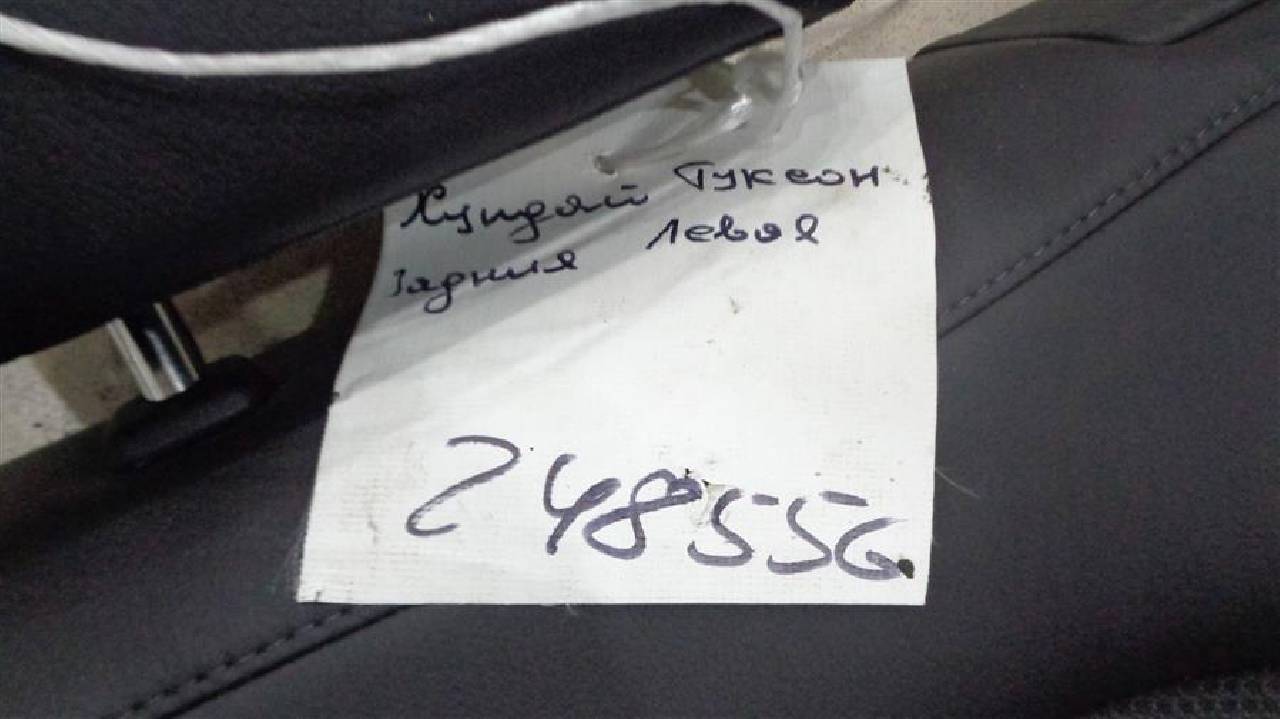 Хундай Туксон
Задния Левоя
248556